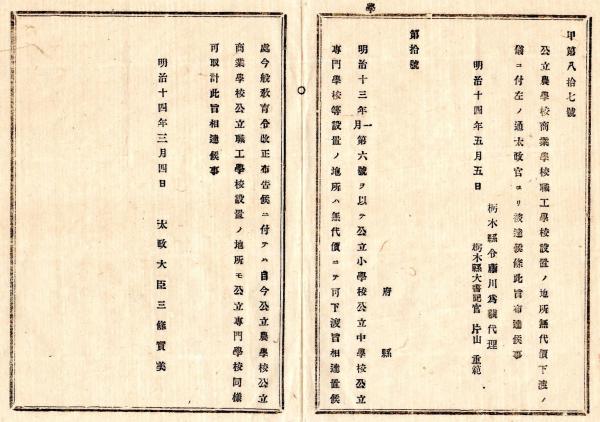 學
甲第八拾七號
公立農學校商業學校職工學校設置ノ地所無代價下渡ノ
儀ニ付左ノ通太政官ヨリ被達候條此旨布達候事
明治十四年五月五日
栃木縣令藤川為親代理
栃木縣大書記官 片山重範
第拾號
府縣
明治十三年一月第六號ヲ以テ公立小學校公立中學校公立
專門學校等設置ノ地所ハ無代價ニテ可下渡旨相達置候
處今般敎育令改正布告候ニ付テハ自今公立農學校公立
商業學校公立職工學校設置ノ地所モ公立專門學校同樣
可取計此旨相達候事
明治十四年三月四日
太政大臣三條實美